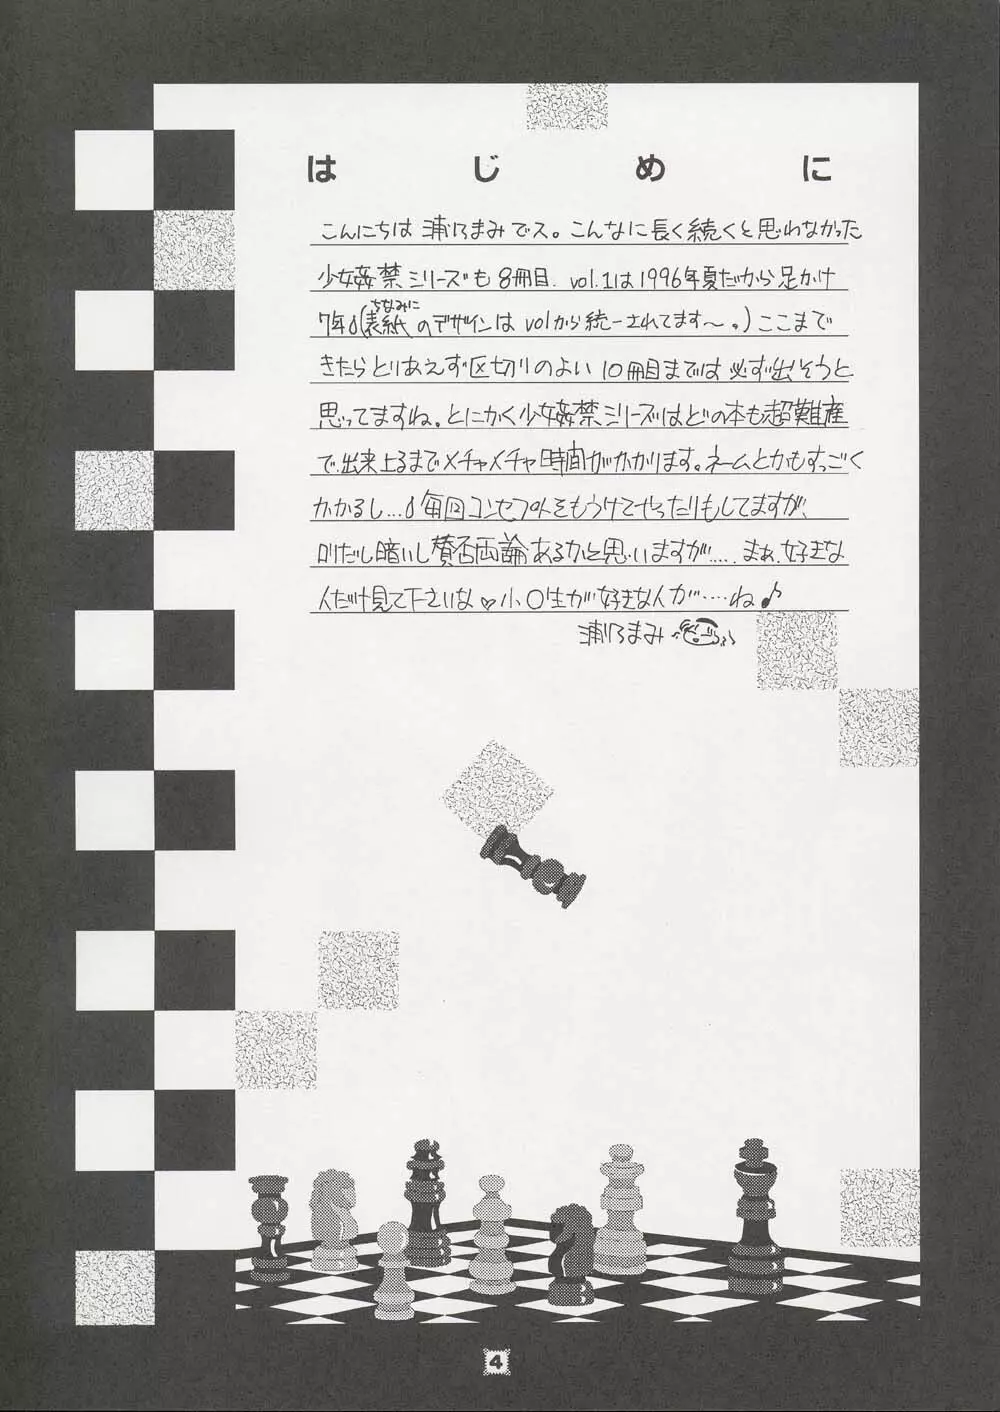 はじめに
こんにちは 浦乃まみでス。こんなに長く続くと思わなかった
少女姦禁シリーズも 8冊目. vol.1は1996年夏だから足かけ
7年(ちなみに表紙のデザインは volから統一されてます〜。)ここまで
きたらとりあえず区切りのよい 10冊目までは 必ず出そうと
思ってますね。とにかく少女姦禁シリーズはどの本も超難産
で.出来上るまでメチャメチャ時間がかかります。ネームとかもすっごく
かかるし...毎回コンセプトをもうけてやったりもしてますが、
ロリだし暗いし賛否両論あるかと思いますが..... まぁ.好きな
人だけ見て下さいな♡小〇生が好きな人が‥‥ね♪
浦乃まみ
4